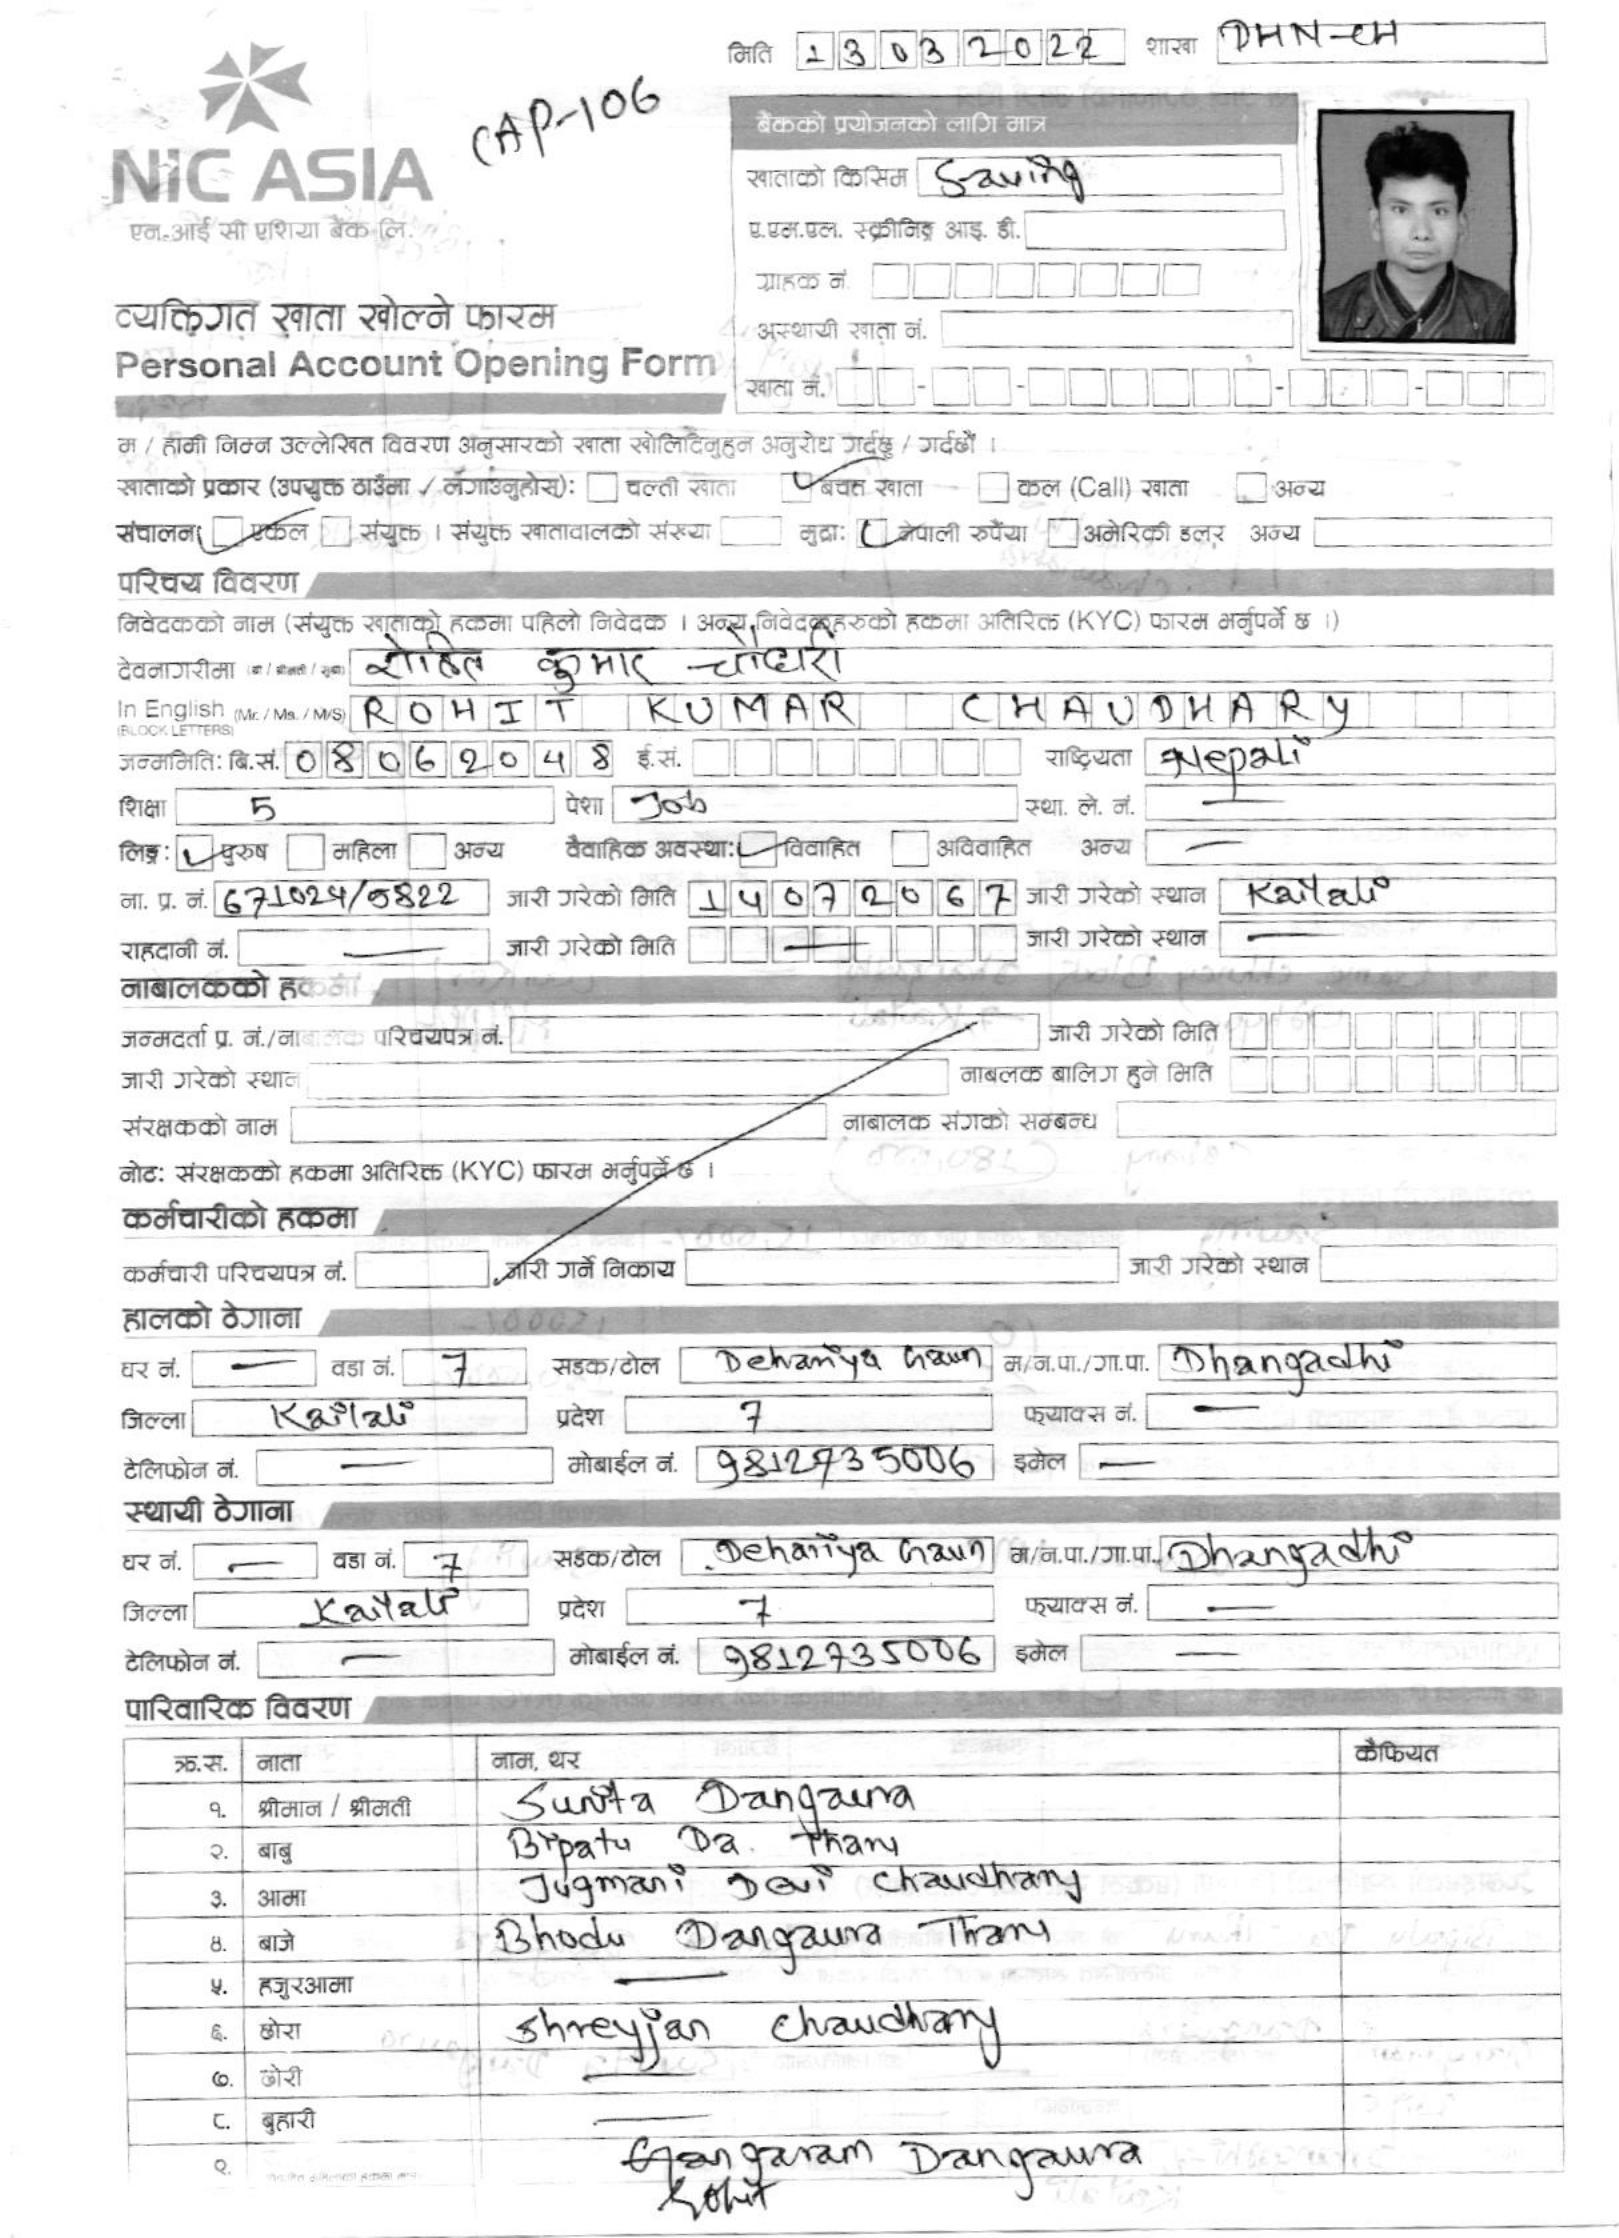 मिति 13032022 शाखा DHN-CH
CAP-106
NIC ASIA
एन.आई सी एशिया बैंक लि.
बैंकको प्रयोजनको लागि मात्र
खाताको किसिम Saving
ए.एम.एल. स्क्रीनिङ्ग आइ. डी.
ग्राहक नं.
अस्थायी खाता नं.
खाता नं.
व्यक्तिगत खाता खोल्ने फारम
Personal Account Opening Form
म / हामी निम्न उल्लेखित विवरण अनुसारको खाता खोलिदिनुहुन अनुरोध गर्दछु / गर्दछौं ।
खाताको प्रकार (उपयुक्त ठाउँमा ✓ लगाउनुहोस्): चल्ती खाता ✓ बचत खाता कल (Call) खाता अन्य
संचालन: ✓ एकल संयुक्त । संयुक्त खातावालको संख्या मुद्रा: नेपाली रुपैंया अमेरिकी डलर अन्य
परिचय विवरण
निवेदकको नाम (संयुक्त खाताको हकमा पहिलो निवेदक । अन्य निवेदकहरुको हकमा अतिरिक्त (KYC) फारम भर्नुपर्ने छ ।)
देवनागरीमा (श्री / श्रीमती / सुश्री) रोहित कुमार चौधरी
In English (Mr. / Ms. / M/S) ROHIT KUMAR CHAUDHARY
(BLOCK LETTERS)
जन्ममिति: बि.सं. 08062048 ई.सं. राष्ट्रियता Nepali
शिक्षा 5 पेशा Job स्था. ले. नं. —
लिङ्ग: ✓ पुरुष महिला अन्य वैवाहिक अवस्था: ✓ विवाहित अविवाहित अन्य —
ना. प्र. नं. 671024/5822 जारी गरेको मिति 14072067 जारी गरेको स्थान Kailali
राहदानी नं. — जारी गरेको मिति — जारी गरेको स्थान —
नाबालकको हकमा
जन्मदर्ता प्र. नं./नाबालक परिचयपत्र नं. जारी गरेको मिति
जारी गरेको स्थान नाबलक बालिग हुने मिति
संरक्षकको नाम नाबालक संगको सम्बन्ध
नोट: संरक्षकको हकमा अतिरिक्त (KYC) फारम भर्नुपर्ने छ ।
कर्मचारीको हकमा
कर्मचारी परिचयपत्र नं. जारी गर्ने निकाय जारी गरेको स्थान
हालको ठेगाना
घर नं. — वडा नं. 7 सडक/टोल Dehaniya Gaun म/न.पा./गा.पा. Dhangadhi
जिल्ला Kailali प्रदेश 7 फ्याक्स नं. —
टेलिफोन नं. — मोबाईल नं. 9812735006 इमेल —
स्थायी ठेगाना
घर नं. — वडा नं. 7 सडक/टोल Dehaniya Gaun म/न.पा./गा.पा. Dhangadhi
जिल्ला Kailali प्रदेश 7 फ्याक्स नं. —
टेलिफोन नं. — मोबाईल नं. 9812735006 इमेल —
पारिवारिक विवरण
क्र.स. नाता नाम, थर कैफियत
१. श्रीमान / श्रीमती Sunita Dangaura
२. बाबु Bipatu Da. Tharu
३. आमा Jugmani Devi Chaudhary
४. बाजे Bhodu Dangaura Tharu
५. हजुरआमा —
६. छोरा Shreyjan Chaudhary
७. छोरी —
८. बुहारी —
९. Gangaram Dangaura
Rohit